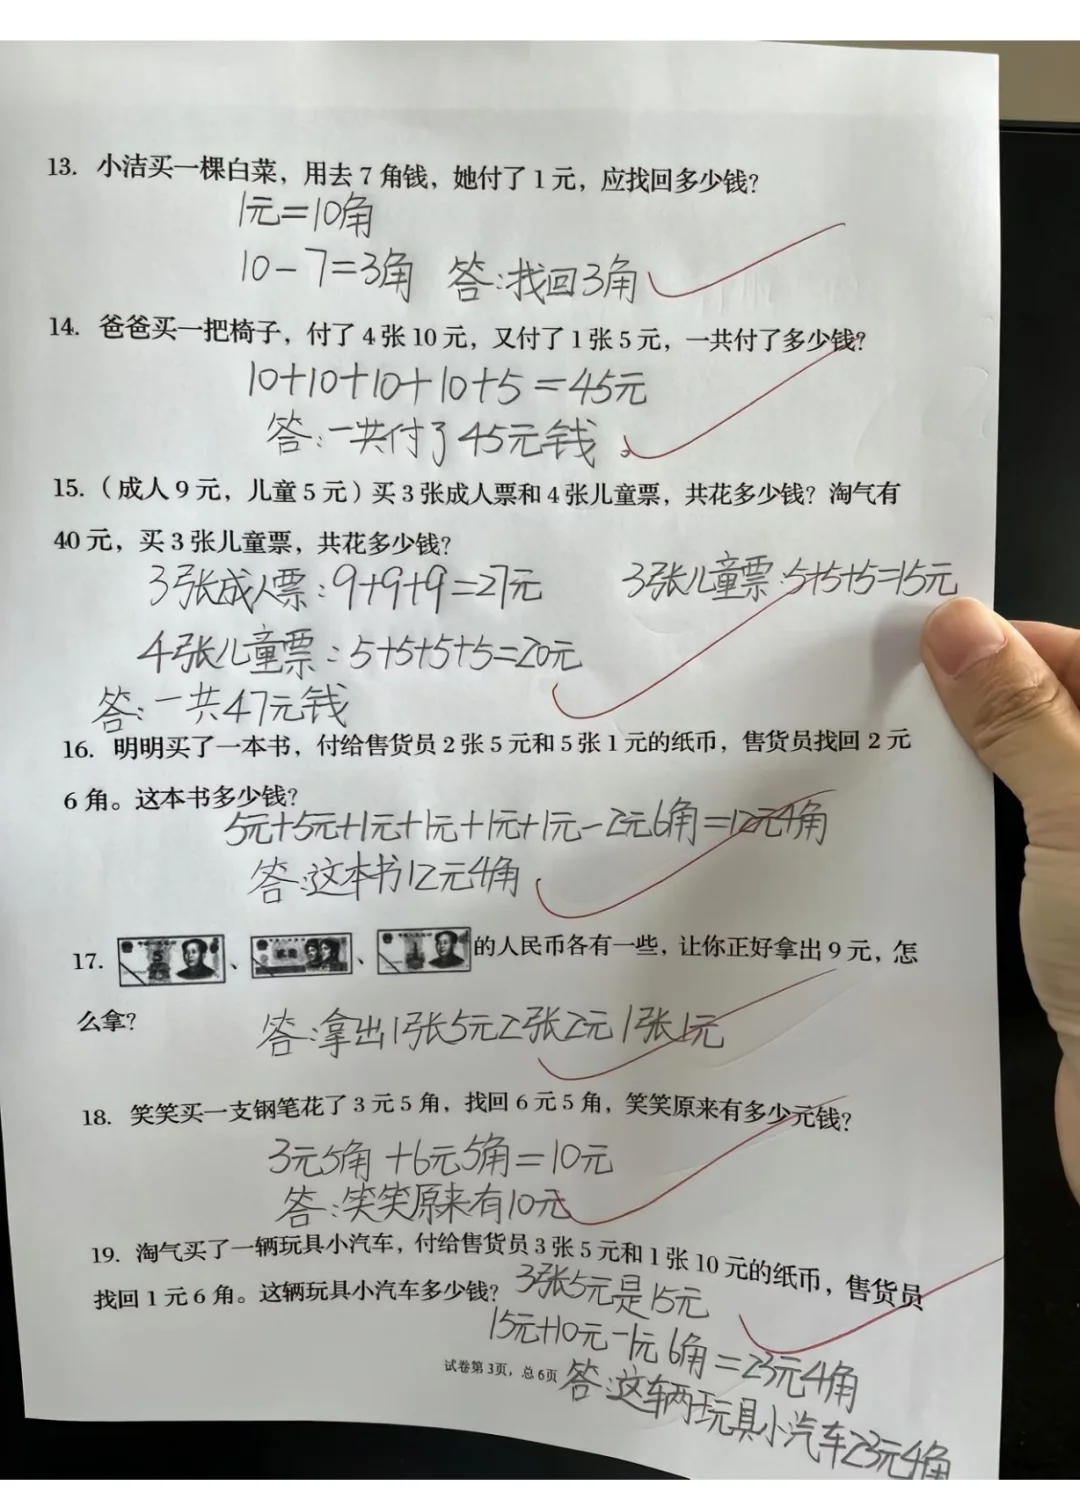 13. 小洁买一棵白菜，用去 7 角钱，她付了 1 元，应找回多少钱？
1元=10角
10-7=3角 答:找回3角
14. 爸爸买一把椅子，付了 4 张 10 元，又付了 1 张 5 元，一共付了多少钱？
10+10+10+10+5=45元
答:一共付了45元钱
15.（成人 9 元，儿童 5 元）买 3 张成人票和 4 张儿童票，共花多少钱？淘气有
40 元，买 3 张儿童票，共花多少钱？
3张成人票:9+9+9=27元 3张儿童票:5+5+5=15元
4张儿童票:5+5+5+5=20元
答:一共47元钱
16. 明明买了一本书，付给售货员 2 张 5 元和 5 张 1 元的纸币，售货员找回 2 元
6 角。这本书多少钱？
5元+5元+1元+1元+1元+1元-2元6角=12元4角
答:这本书12元4角
17. 、 、 的人民币各有一些，让你正好拿出 9 元，怎
么拿？
答:拿出1张5元2张2元1张1元
18. 笑笑买一支钢笔花了 3 元 5 角，找回 6 元 5 角，笑笑原来有多少元钱？
3元5角+6元5角=10元
答:笑笑原来有10元
19. 淘气买了一辆玩具小汽车，付给售货员 3 张 5 元和 1 张 10 元的纸币，售货员
找回 1 元 6 角。这辆玩具小汽车多少钱？ 3张5元是15元
15元+10元-1元6角=23元4角
答:这车两玩具小汽车23元4角
试卷第 3页，总 6页